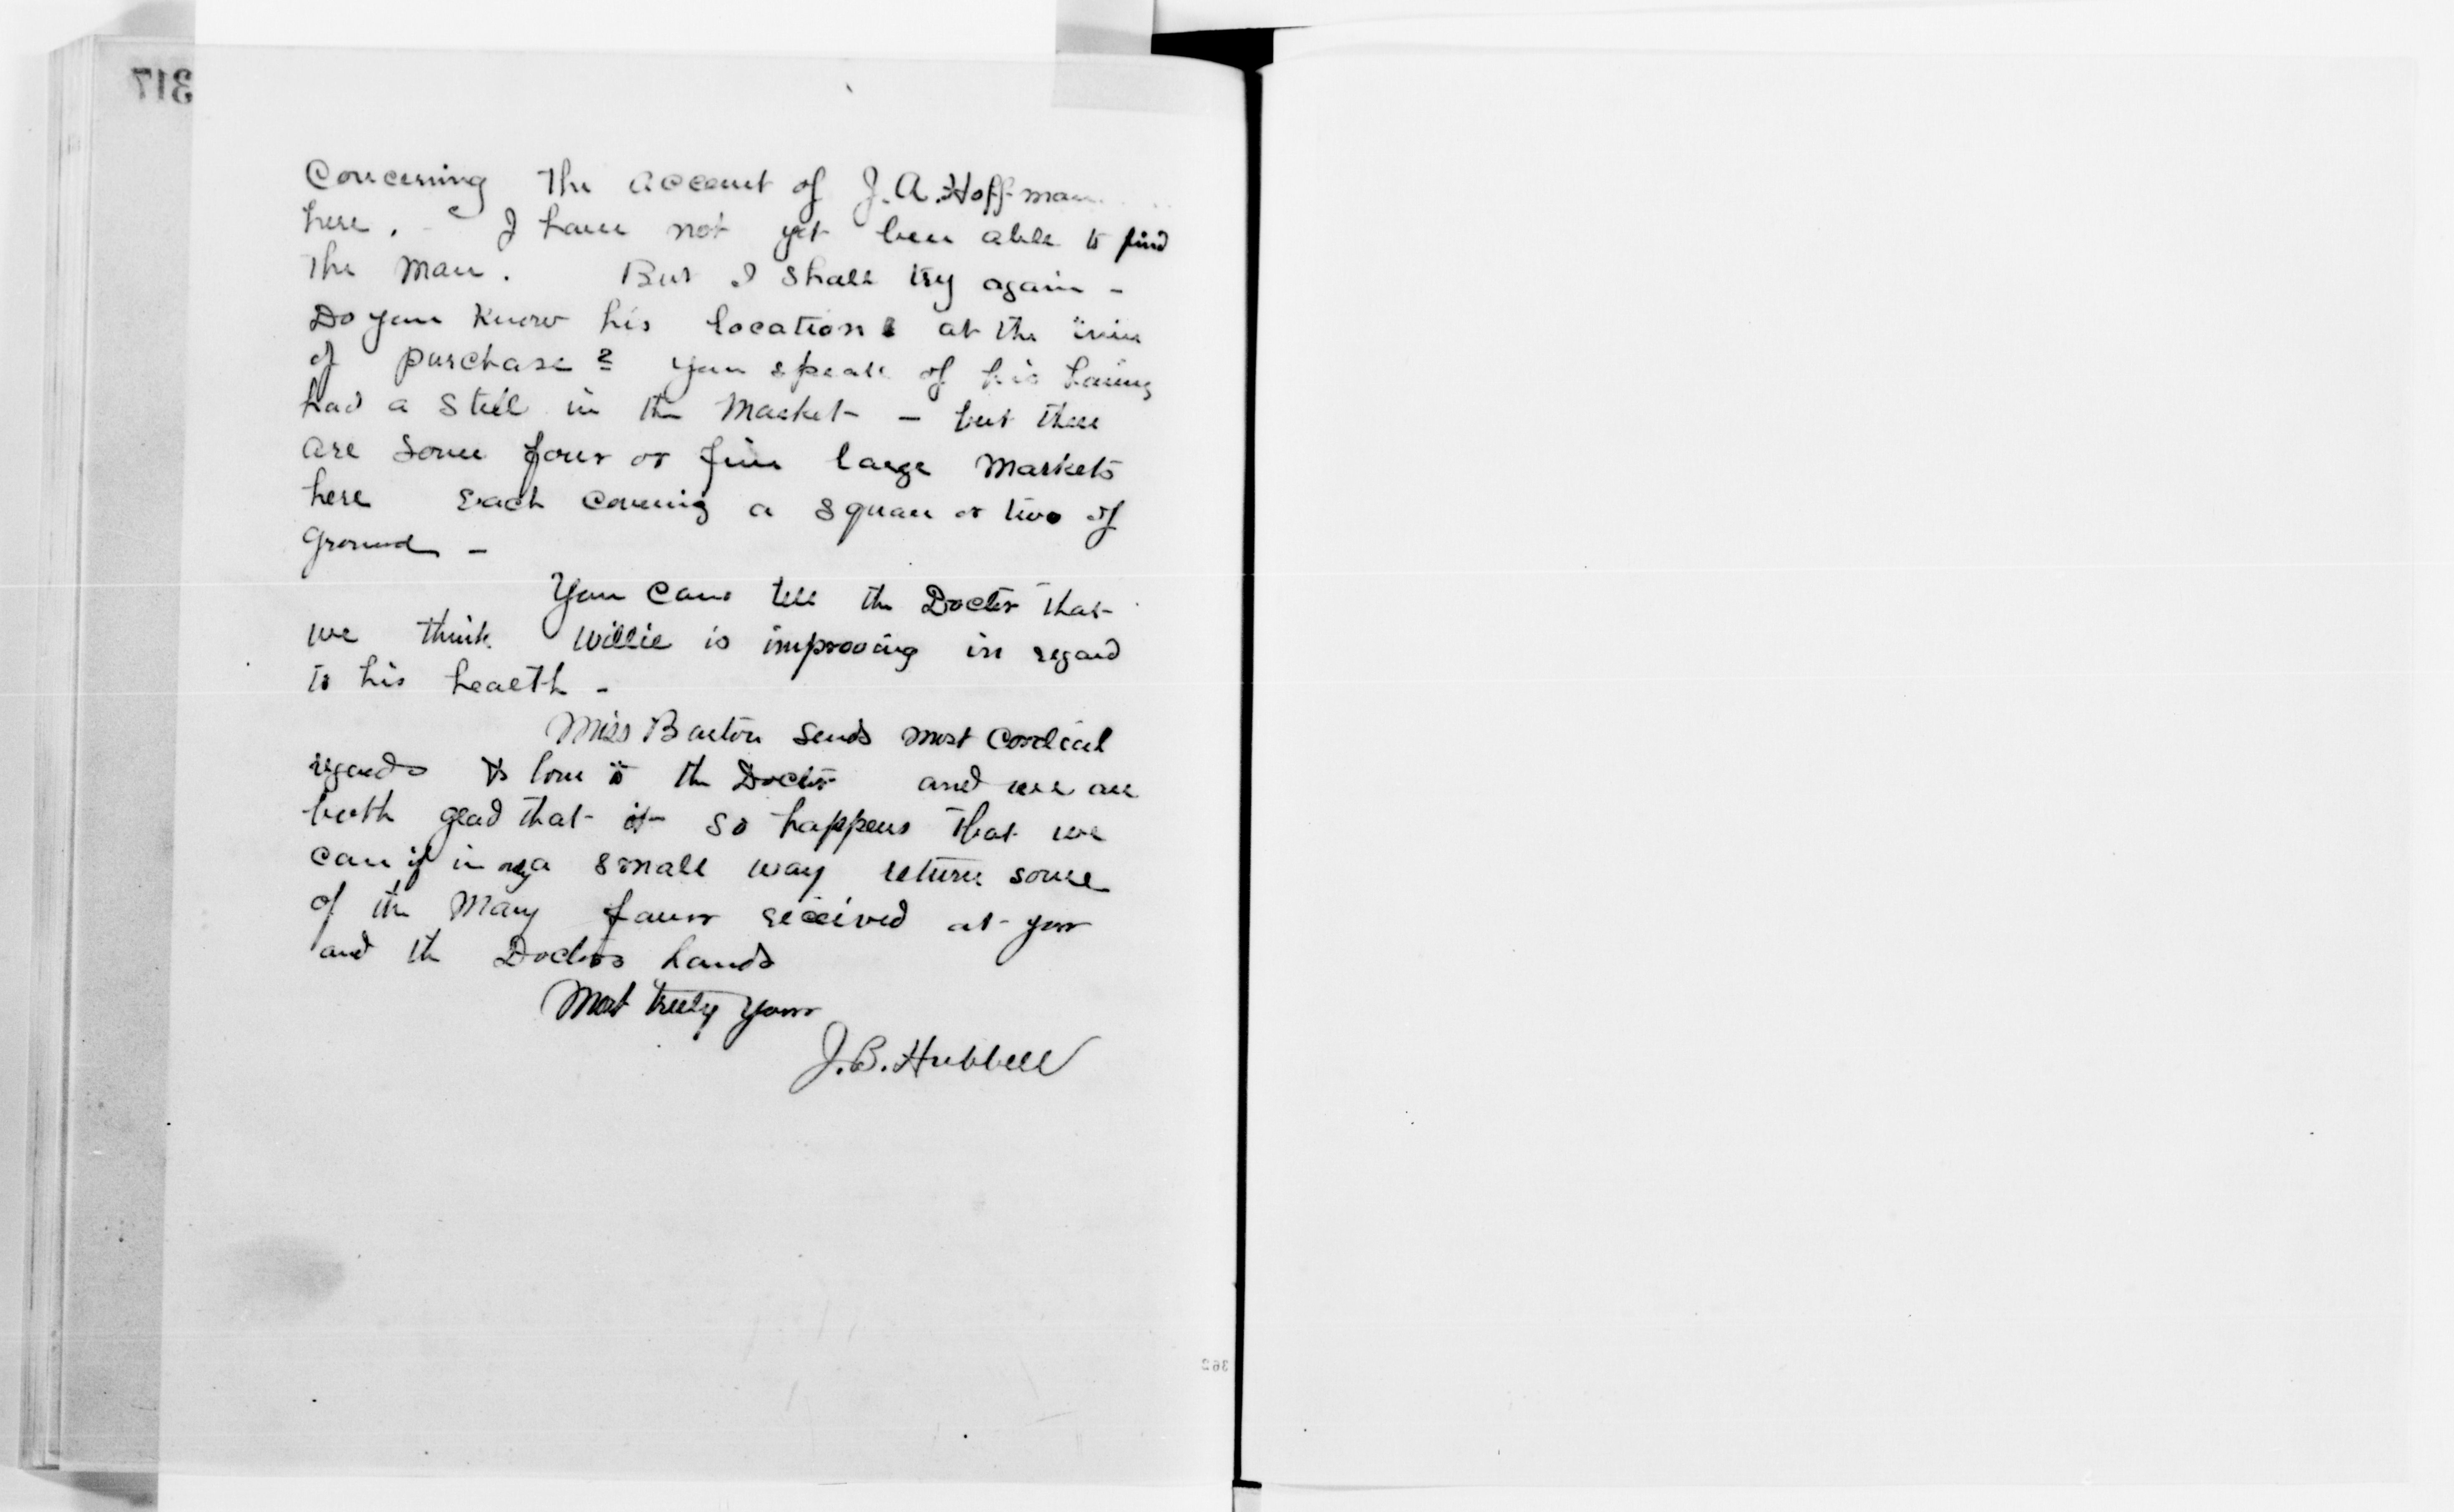 317
Concerning the account of J. A. Hoffman
here. - I have not yet been able to find
the man. But I shall try again -
Do you know his location at the time
of purchase? you speak of his having
had a Stall in the Market - but there
are some four or five large Markets
here Each covering a square or two of
ground -
You can tell the Doctor that
we think Willie is improving in regard
to his health -
Miss Barton sends most cordial
regards & love to the Doctor and we are
both glad that it so happens that we
can if in a small way return some
of the many favors received at your
and the Doctors hands
Most truly yours
J. B. Hubbell
362